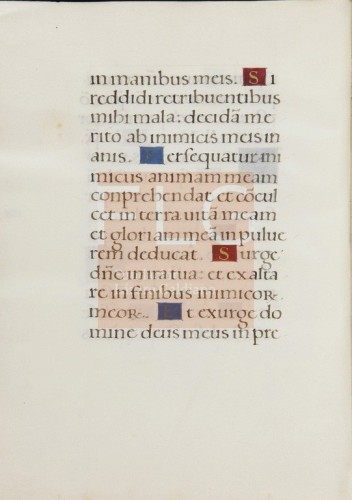 in manibus meis. Si
reddidi retribuentibus
mihi mala: decidā me
rito ab inimicis meis in
anis. Persequatur ini
micus animam meam
conprehendat et cōcul
cet in terra uitā meam
et gloriam meā in pulue
rem deducat. Surge
dn̄e in ira tua: et exalta
re in finibus inimicor̄
meor̄. Et exurge do
mine deus meus in pre
FLG